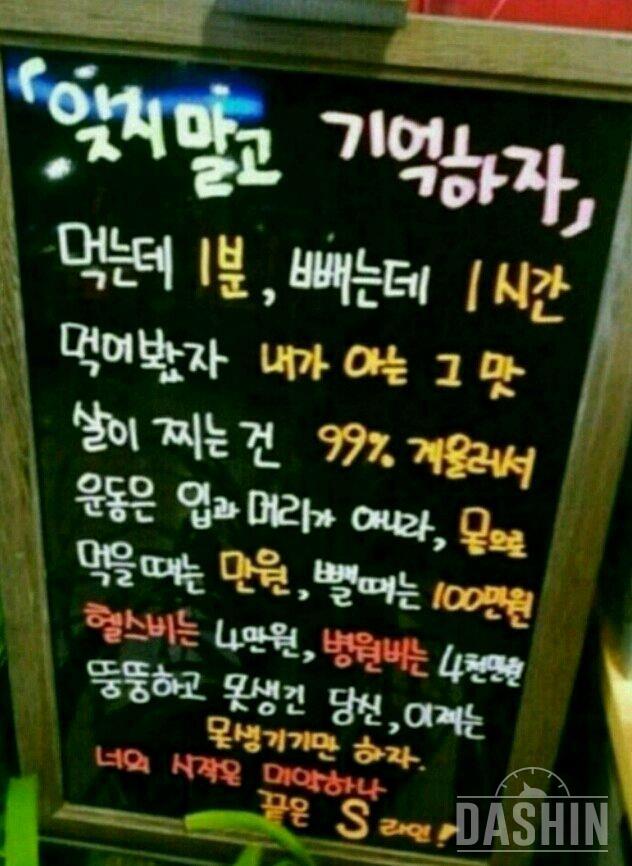 「잊지말고 기억하자」
먹는데 1분, 빼는데 1시간
먹어봤자 내가 아는 그 맛
살이 찌는 건 99% 게을러서
운동은 입과 머리가 아니라, 몸으로
먹을때는 만원, 뺄때는 100만원
헬스비는 4만원, 병원비는 4천만원
뚱뚱하고 못생긴 당신, 이제는
못생기기만 하자.
너의 시작은 미약하나
끝은 S라인!
DASHIN